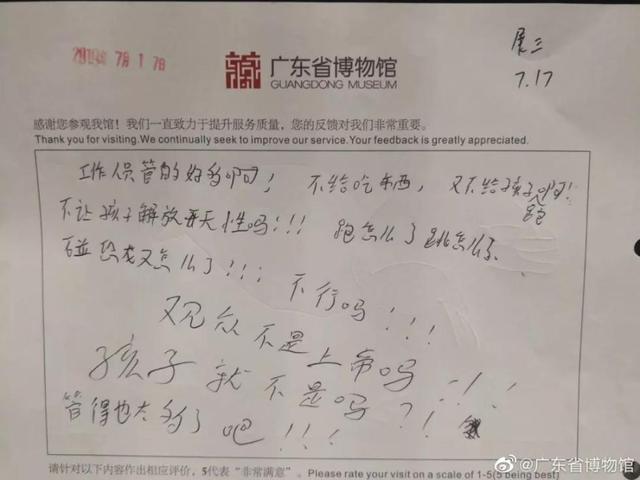 2019年 7月 17日
展三
7.17
广东省博物馆
GUANGDONG MUSEUM
感谢您参观我馆！我们一直致力于提升服务质量，您的反馈对我们非常重要。
Thank you for visiting.We continually seek to improve our service.Your feedback is greatly appreciated.
工作人员管的好多啊！ 不给吃东西，又不给孩子跑啊！
不让孩子解放天性吗！！！ 跑怎么了 跳怎么了
碰恐龙又怎么了！！！ 不行吗！！！
观众不是上帝吗！！！
孩子就不是吗？！！
管得也太多了吧！！！
请针对以下内容作出相应评价，5代表“非常满意”。Please rate your visit on a scale of 1-5(5 being best)
@广东省博物馆